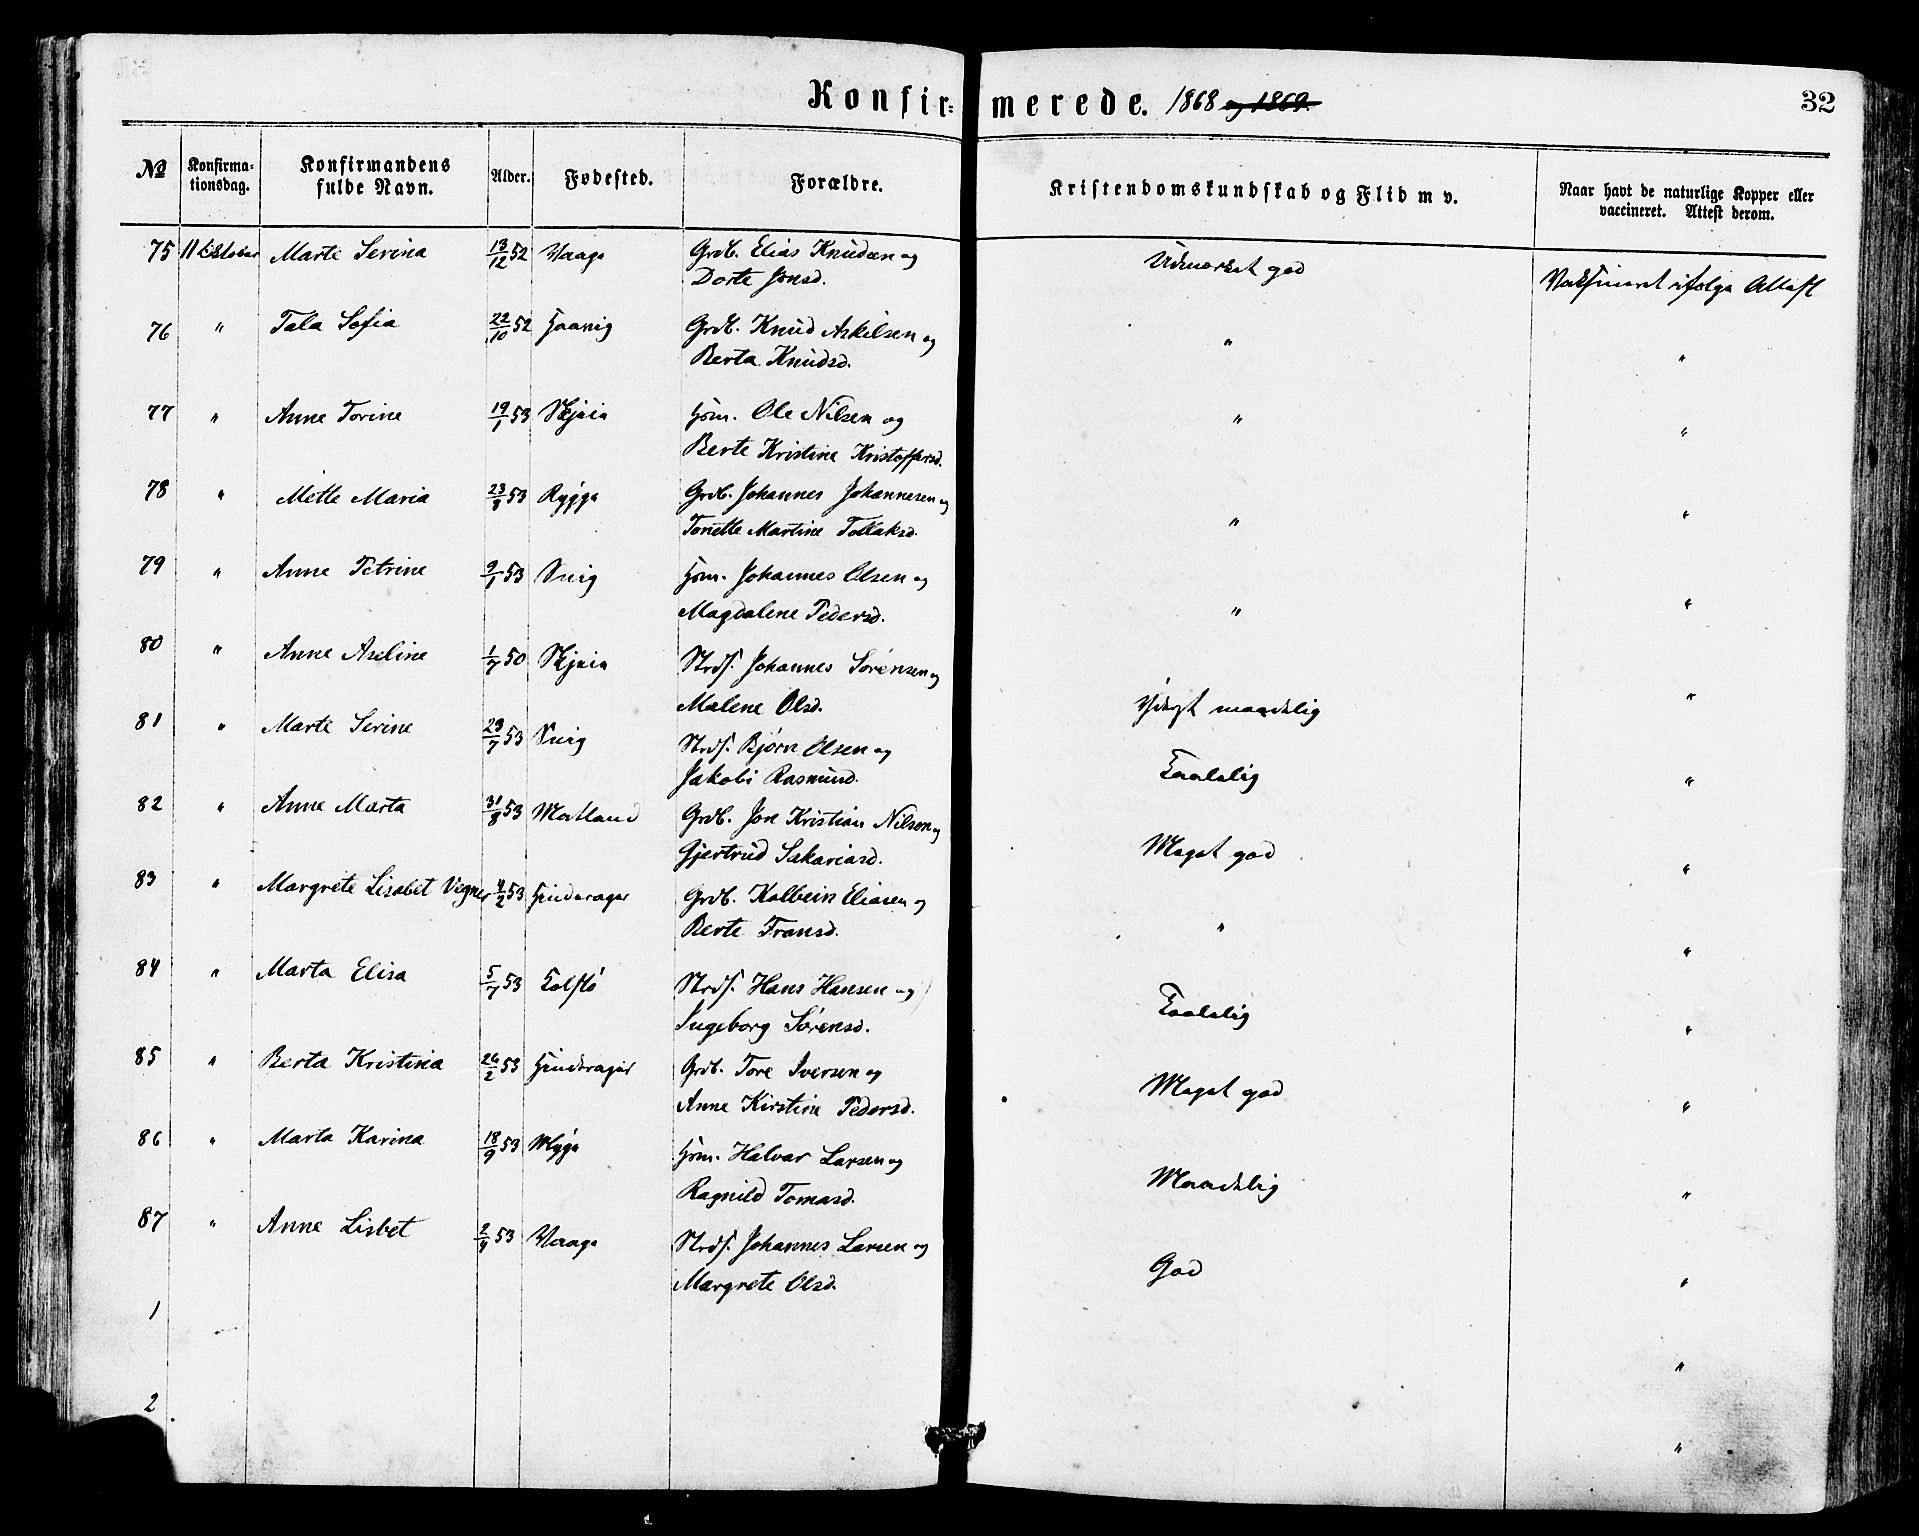 Konfirmerede. 1868 og 1869.
32
№ Konfirmationsdag. Konfirmandens fulde Navn. Alder. Fødested. Forældre. Kristendomskundskab og Flid m v. Naar havt de naturlige Kopper eller vaccineret. Attest derom.
75 11 Oktober Marte Serina 13/12 52 Vaage Grdb. Elias Knudsen og Udmærket god Vaksineret ifølge Attest
Dorte Jonsd.
76 " Tala Sofia 22/10 52 Grdb. Knud Askilsen og " "
Berta Knudsd.
77 " Anne Torine 19/1 53 Hsm. Ole Nilsen og " "
Berte Kristine Kristoffersd.
78 " Mette Maria 23/8 53 Rygge Grdb. Johannes Johannesen og " "
Tonette Martine Tollaksd.
79 " Anne Petrine 9/1 53 Hsm. Johannes Olsen og " "
Magdalene Pedersd.
80 " Anne Aseline 1/7 50 Strds. Johannes Sørensen og maadelig "
Malene Olsd.
81 " Marte Serine 23/7 53 Strds. Bjørn Olsen og Taalelig "
Jakobi Rasmusd.
82 " Anne Marta 31/8 53 Matland Grdb. Jon Kristian Nilsen og Meget god "
Gjertrud Sakariasd.
83 " Margrete Lisabet Vegner 4/2 53 Hinderager Grdb. Kolbein Eliasen og " "
Berte Fransd.
84 " Marta Elisa 5/7 53 Strds. Hans Hansen og Taalelig "
Ingeborg Sørensd.
85 " Berta Kristina 26/2 53 Hinderager Grdb. Tore Iversen og Meget god "
Anne Kirstine Pedersd.
86 " Marta Karina 18/9 53 Hsm. Halvar Larsen og Maadelig "
Ragnild Tomasd.
87 " Anne Lisbet 2/4 53 Vaage Strds. Johannes Larsen og God "
Margrete Olsd.
1 "
2 "